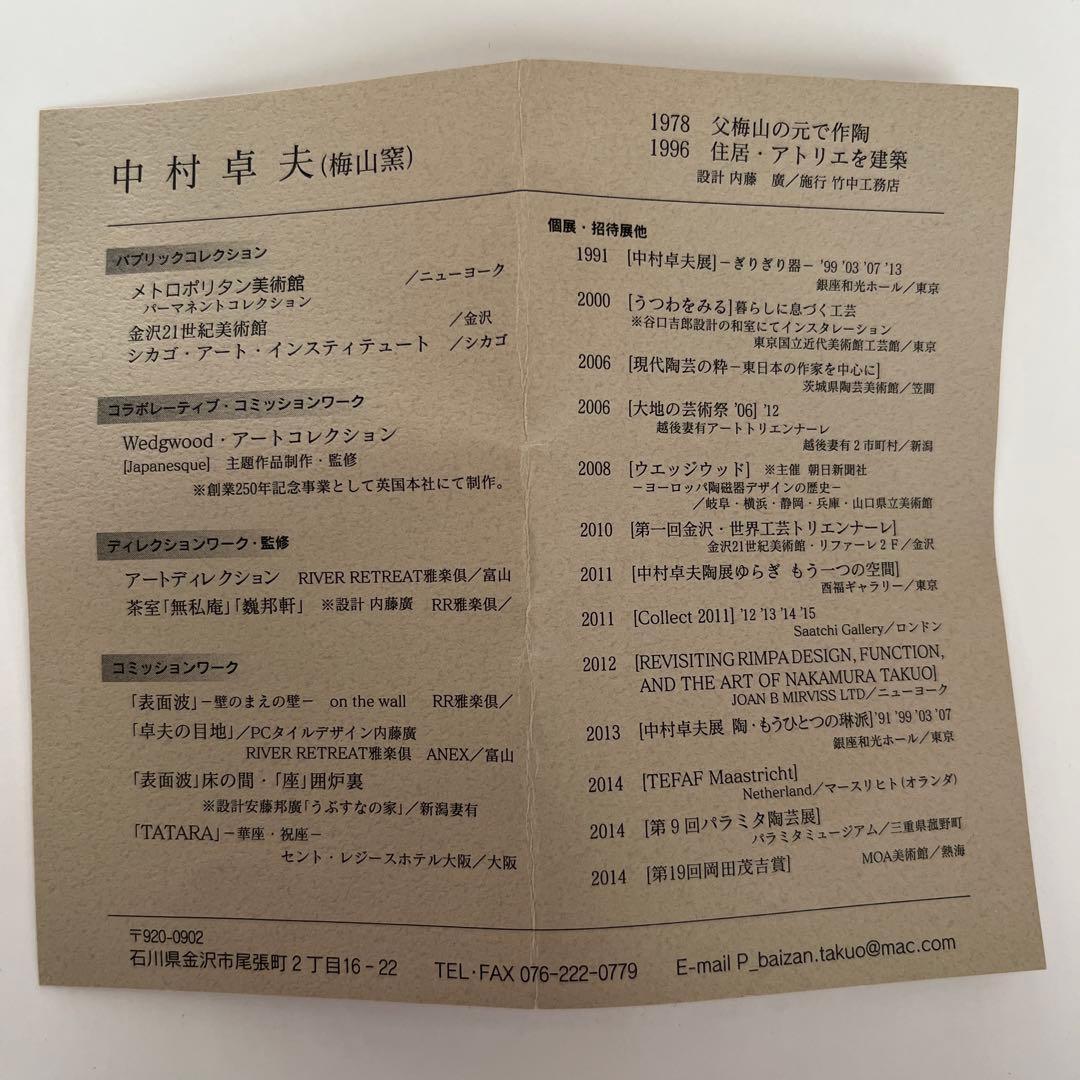 中村卓夫(梅山窯)
パブリックコレクション
メトロポリタン美術館 ／ニューヨーク
パーマネントコレクション
金沢21世紀美術館 ／金沢
シカゴ・アート・インスティテュート ／シカゴ
コラボレーティブ・コミッションワーク
Wedgwood・アートコレクション
[Japanesque] 主題作品制作・監修
※創業250年記念事業として英国本社にて制作。
ディレクションワーク・監修
アートディレクション RIVER RETREAT雅楽倶／富山
茶室「無私庵」「巍邦軒」 ※設計 内藤廣 RR雅楽倶／
コミッションワーク
「表面波」－壁のまえの壁－ on the wall RR雅楽倶／
「卓夫の目地」／PCタイルデザイン内藤廣
RIVER RETREAT雅楽倶 ANEX／富山
「表面波」床の間・「座」囲炉裏
※設計安藤邦廣「うぶすなの家」／新潟妻有
「TATARA」－華座・祝座－
セント・レジースホテル大阪／大阪
1978 父梅山の元で作陶
1996 住居・アトリエを建築
設計 内藤 廣／施行 竹中工務店
個展・招待展他
1991 [中村卓夫展]－ぎりぎり器－ '99 '03 '07 '13
銀座和光ホール／東京
2000 [うつわをみる]暮らしに息づく工芸
※谷口吉郎設計の和室にてインスタレーション
東京国立近代美術館工芸館／東京
2006 [現代陶芸の粋－東日本の作家を中心に]
茨城県陶芸美術館／笠間
2006 [大地の芸術祭 '06] '12
越後妻有アートトリエンナーレ
越後妻有２市町村／新潟
2008 [ウエッジウッド] ※主催 朝日新聞社
－ヨーロッパ陶磁器デザインの歴史－
／岐阜・横浜・静岡・兵庫・山口県立美術館
2010 [第一回金沢・世界工芸トリエンナーレ]
金沢21世紀美術館・リファーレ２Ｆ／金沢
2011 [中村卓夫陶展ゆらぎ もう一つの空間]
酉福ギャラリー／東京
2011 [Collect 2011] '12 '13 '14 '15
Saatchi Gallery／ロンドン
2012 [REVISITING RIMPA DESIGN, FUNCTION,
AND THE ART OF NAKAMURA TAKUO]
JOAN B MIRVISS LTD／ニューヨーク
2013 [中村卓夫展 陶・もうひとつの琳派]'91 '99 '03 '07
銀座和光ホール／東京
2014 [TEFAF Maastricht]
Netherland／マースリヒト(オランダ)
2014 [第９回パラミタ陶芸展]
パラミタミュージアム／三重県菰野町
2014 [第19回岡田茂吉賞] MOA美術館／熱海
〒920-0902
石川県金沢市尾張町２丁目16－22 TEL・FAX 076-222-0779 E-mail P_baizan.takuo@mac.com